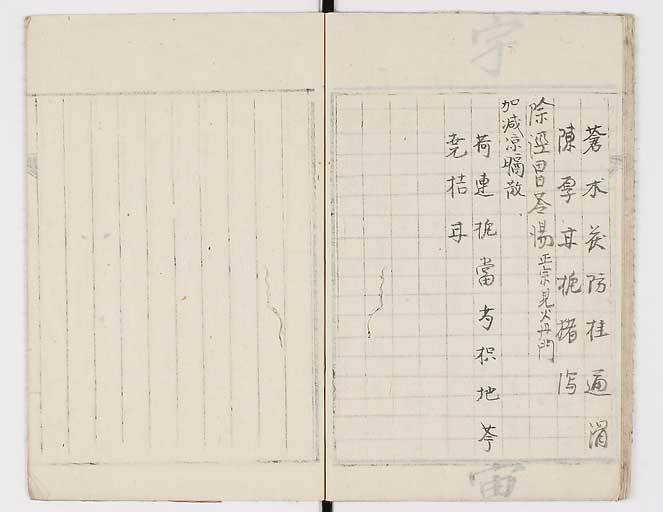 蒼朮茯防桂通滑
陳厚耳梔猪泻
除湿胃苓湯正宗見火丹門
加减凉膈散
荷連梔當芍枳地芩
羌桔耳
宇
宙